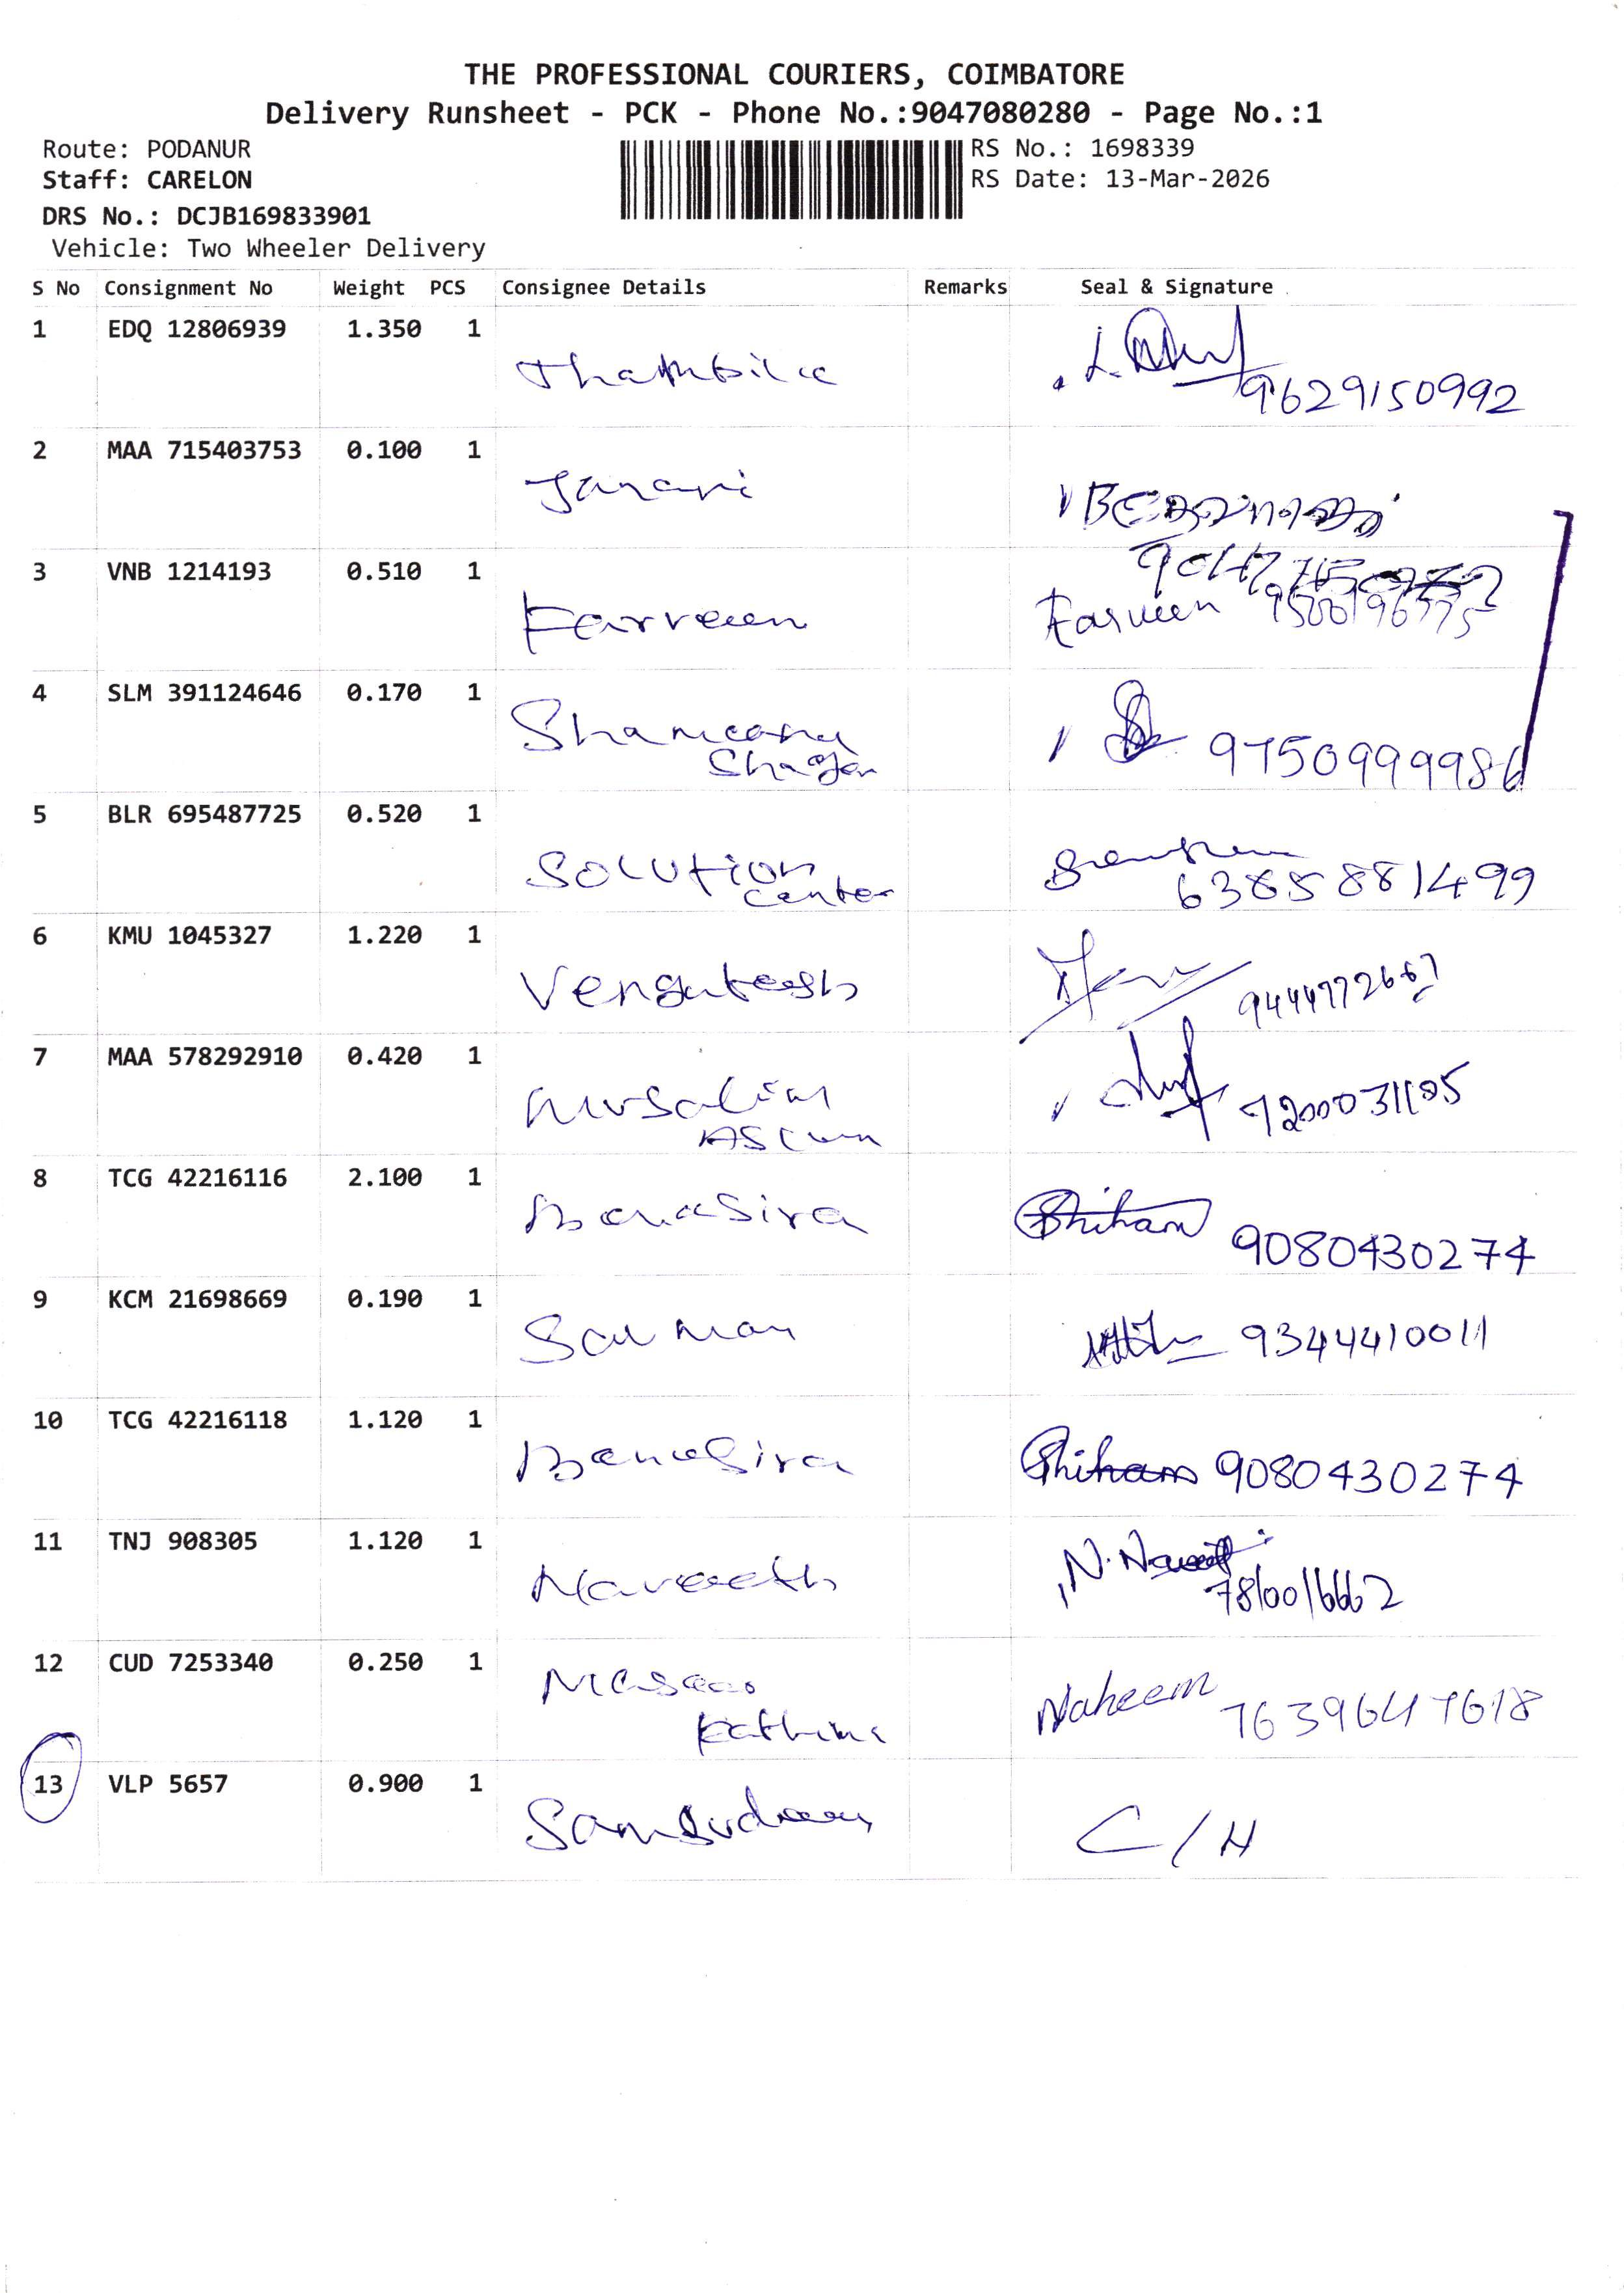 THE PROFESSIONAL COURIERS, COIMBATORE
Delivery Runsheet - PCK - Phone No.:9047080280 - Page No.:1
Route: PODANUR
RS No.: 1698339
Staff: CARELON
RS Date: 13-Mar-2026
DRS No.: DCJB169833901
Vehicle: Two Wheeler Delivery
S No Consignment No Weight PCS Consignee Details Remarks Seal & Signature
1 EDQ 12806939 1.350 1
9629150992
2 MAA 715403753 0.100 1
Janani
3 VNB 1214193 0.510 1
Farveen Farveen
4 SLM 391124646 0.170 1
9750999986
5 BLR 695487725 0.520 1
Solution
Center 6385881499
6 KMU 1045327 1.220 1
Vengateesh 9444772667
7 MAA 578292910 0.420 1
9200031105
8 TCG 42216116 2.100 1
Banasira Shihan 9080430274
9 KCM 21698669 0.190 1
Salman 9344410011
10 TCG 42216118 1.120 1
Banasira Shihan 9080430274
11 TNJ 908305 1.120 1
Navaneeth N.
12 CUD 7253340 0.250 1
Fathima Naheem 7639647618
13 VLP 5657 0.900 1
Samsudeen C/H